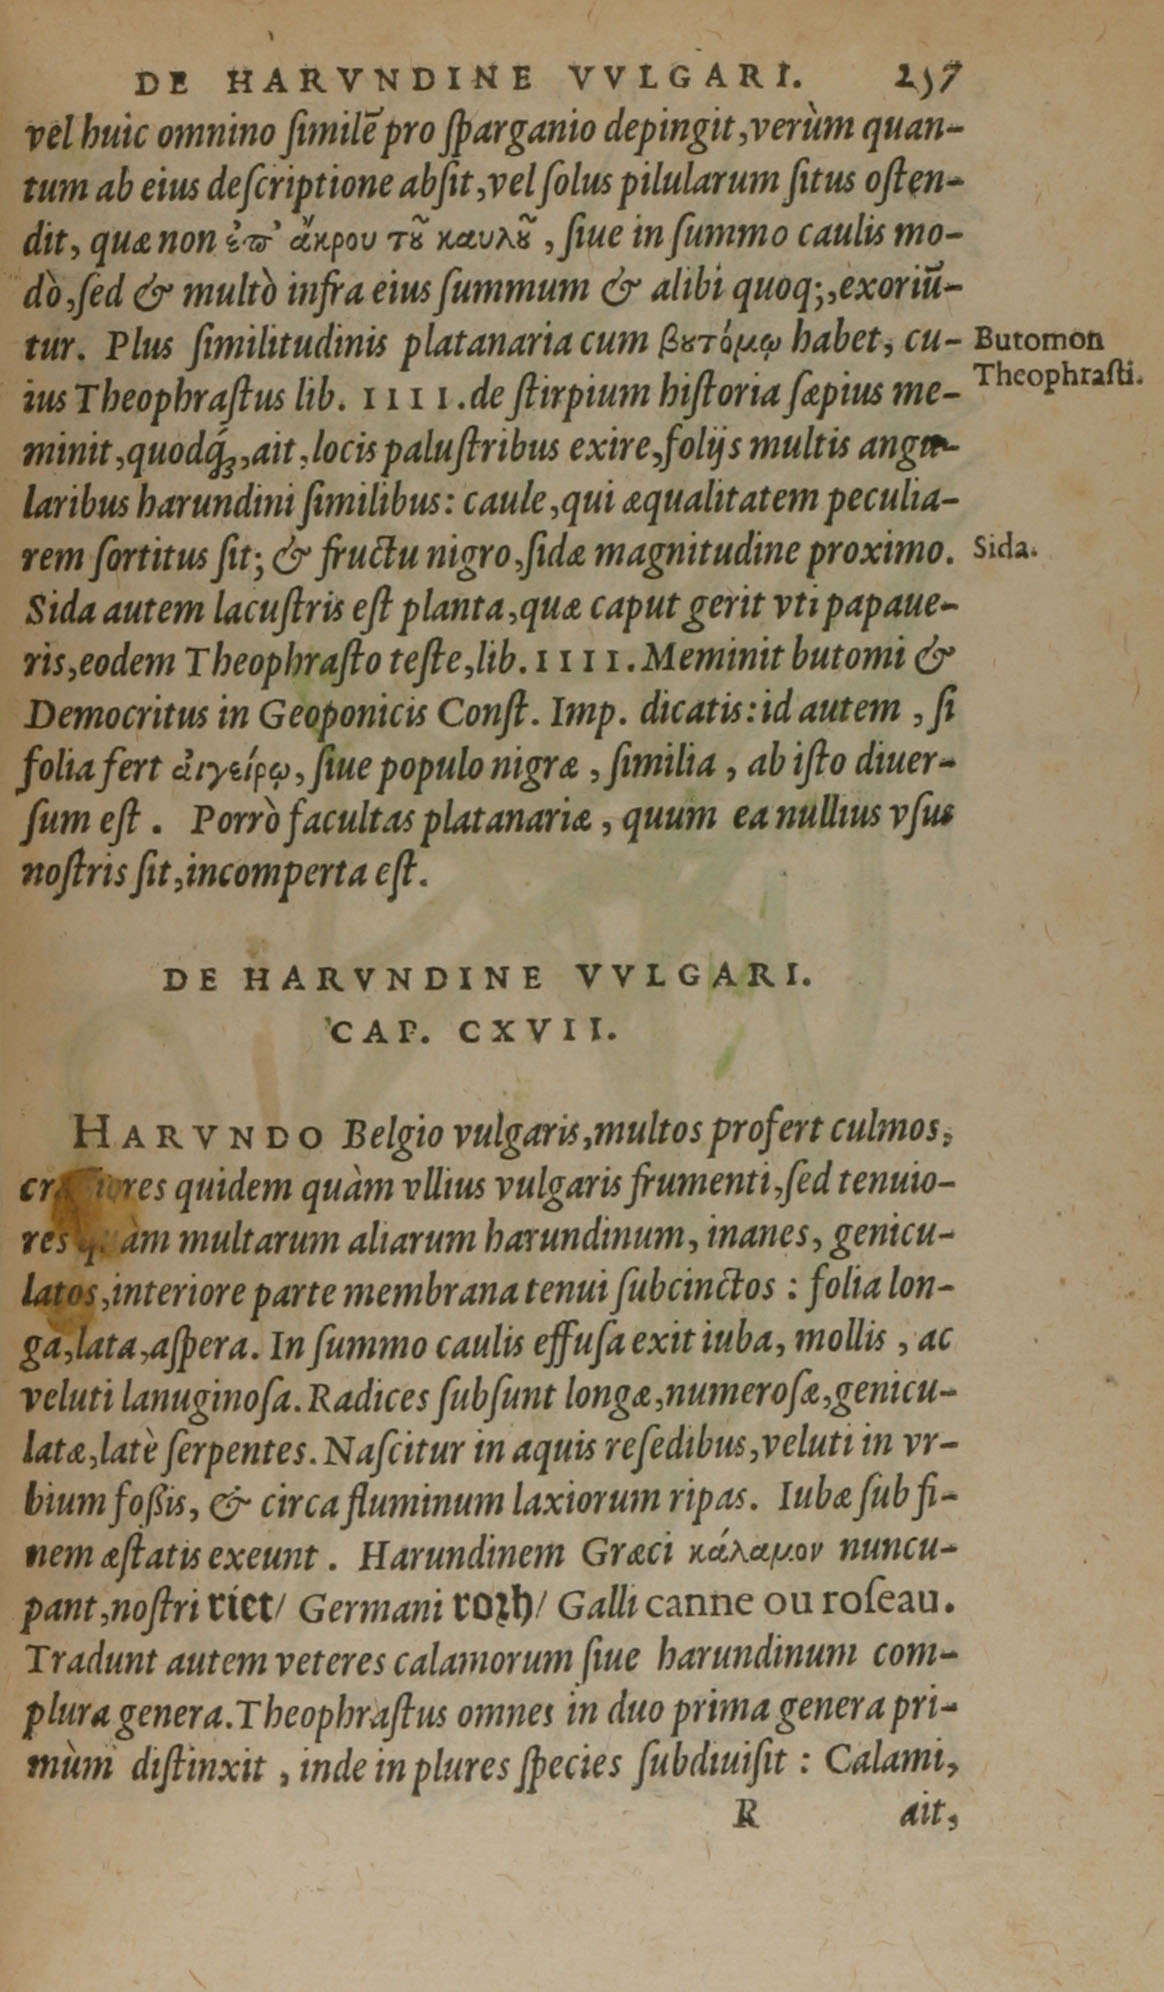 DE HARVNDINE VVLGARI. 257
vel huic omnino ſimilē pro ſparganio depingit, verùm quan-
tum ab eius deſcriptione abſit, vel ſolus pilularum ſitus oſten-
dit, quæ non ἐπ' ἄκρου τȣ͂ καυλȣ͂, ſiue in ſummo caulis mo-
dò, ſed & multò infra eius ſummum & alibi quoq;, exoriū-
tur. Plus ſimilitudinis platanaria cum βȣτόμῳ habet, cu-
Butomon
Theophraſti.
ius Theophraſtus lib. IIII. de ſtirpium hiſtoria ſæpius me-
minit, quodq́ꝫ, ait, locis paluſtribus exire, folijs multis angu-
laribus harundini ſimilibus: caule, qui æqualitatem peculia-
rem ſortitus ſit; & fructu nigro, ſidæ magnitudine proximo.
Sida.
Sida autem lacuſtris eſt planta, quæ caput gerit vti papaue-
ris, eodem Theophraſto teſte, lib. IIII. Meminit butomi &
Democritus in Geoponicis Conſt. Imp. dicatis: id autem, ſi
folia fert ἀιγείρῳ, ſiue populo nigræ, ſimilia, ab iſto diuer-
ſum eſt. Porrò facultas platanariæ, quum ea nullius vſus
noſtris ſit, incomperta eſt.
DE HARVNDINE VVLGARI.
CAP. CXVII.
HARVNDO Belgio vulgaris, multos profert culmos,
craſſiores quidem quàm vllius vulgaris frumenti, ſed tenuio-
res quàm multarum aliarum harundinum, inanes, genicu-
latos, interiore parte membrana tenui ſubcinctos: folia lon-
ga, lata, aſpera. In ſummo caulis effuſa exit iuba, mollis, ac
veluti lanuginoſa. Radices ſubſunt longæ, numeroſæ, genicu-
latæ, latè ſerpentes. Naſcitur in aquis reſedibus, veluti in vr-
bium foßis, & circa fluminum laxiorum ripas. Iubæ ſub fi-
nem æſtatis exeunt. Harundinem Græci κάλαμον nuncu-
pant, noſtri riet/ Germani roꝛh/ Galli canne ou roſeau.
Tradunt autem veteres calamorum ſiue harundinum com-
plura genera. Theophraſtus omnes in duo prima genera pri-
mùm diſtinxit, inde in plures ſpecies ſubdiuiſit: Calami,
R ait,